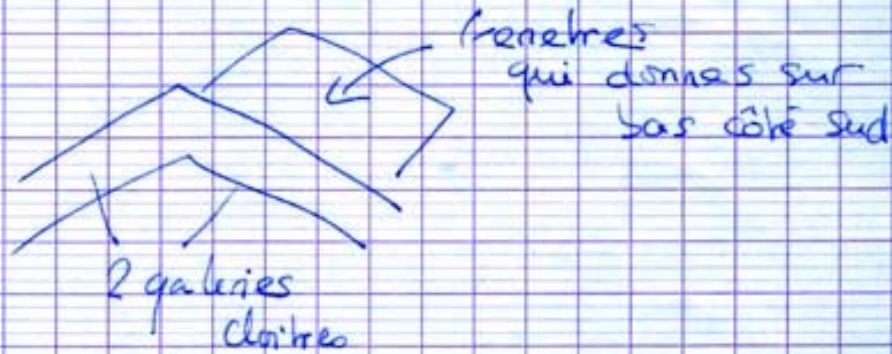 fenetres
qui donnes sur
bas côté sud
2 galeries
cloitres